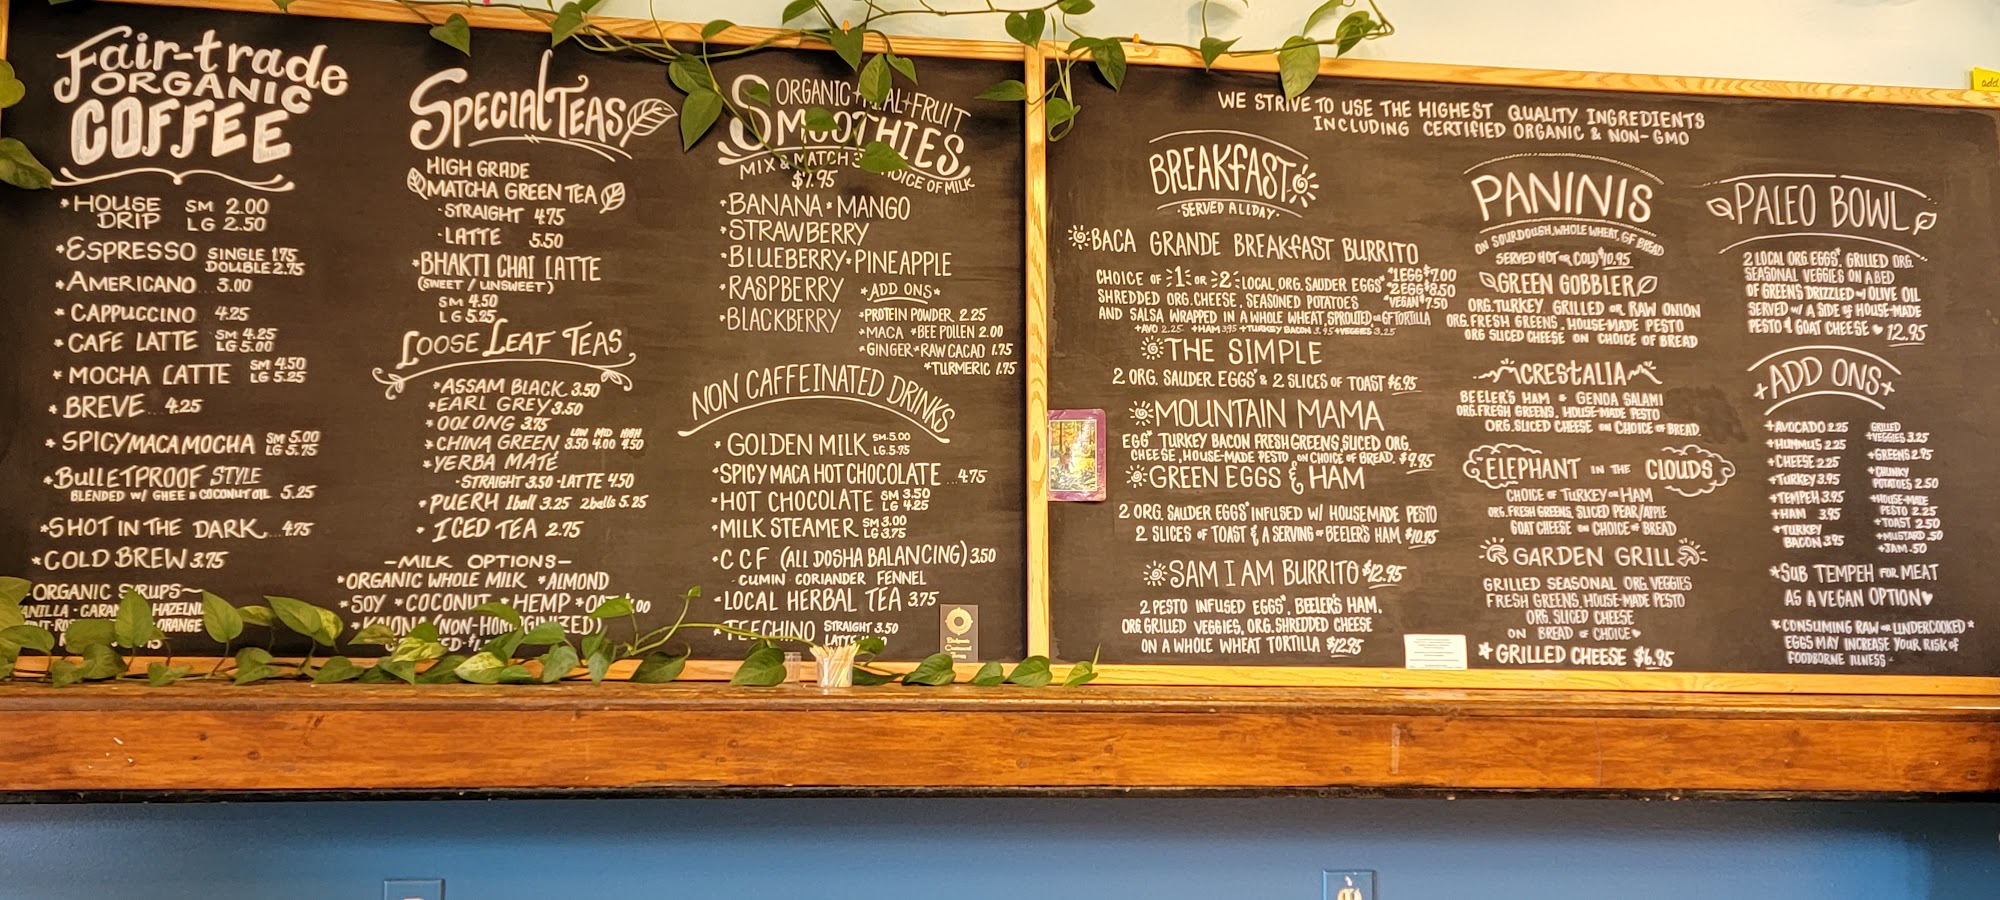 Fair-trade
ORGANIC
COFFEE
*HOUSE DRIP SM 2.00
LG 2.50
*ESPRESSO SINGLE 1.75
DOUBLE 2.75
*AMERICANO 3.00
*CAPPUCCINO 4.25
*CAFE LATTE SM 4.25
LG 5.00
*MOCHA LATTE SM 4.50
LG 5.25
*BREVE... 4.25
*SPICY MACA MOCHA SM 5.00
LG 5.75
*BULLETPROOF STYLE
BLENDED W/ GHEE & COCONUT OIL 5.25
*SHOT IN THE DARK... 4.75
*COLD BREW 3.75
ORGANIC SYRUPS~
HAZELNU
ORANGE
SPECIAL TEAS
HIGH GRADE
MATCHA GREEN TEA
·STRAIGHT 4.75
·LATTE 5.50
*BHAKTI CHAI LATTE
(SWEET / UNSWEET)
SM 4.50
LG 5.25
LOOSE LEAF TEAS
*ASSAM BLACK 3.50
*EARL GREY 3.50
*OOLONG 3.75
*CHINA GREEN LOW MID HIGH
3.50 4.00 4.50
*YERBA MATÉ
·STRAIGHT 3.50 ·LATTE 4.50
*PUERH 1ball 3.25 2balls 5.25
*ICED TEA 2.75
—MILK OPTIONS—
*ORGANIC WHOLE MILK *ALMOND
*SOY *COCONUT *HEMP
(NON-HOMOGINIZED)
ORGANIC + FRUIT
SMOOTHIES
MIX & MATCH 3 CHOICE OF MILK
$7.95
*BANANA *MANGO
*STRAWBERRY
*BLUEBERRY *PINEAPPLE
*RASPBERRY *ADD ONS*
*BLACKBERRY *PROTEIN POWDER 2.25
*MACA *BEE POLLEN 2.00
*GINGER *RAW CACAO 1.75
*TURMERIC 1.75
NON CAFFEINATED DRINKS
*GOLDEN MILK SM 5.00
LG 5.75
*SPICY MACA HOT CHOCOLATE ..4.75
*HOT CHOCOLATE SM 3.50
LG 4.25
*MILK STEAMER SM 3.00
LG 3.75
*CCF (ALL DOSHA BALANCING) 3.50
·CUMIN CORIANDER FENNEL
*LOCAL HERBAL TEA 3.75
*TEECHINO STRAIGHT 3.50
LATTE
WE STRIVE TO USE THE HIGHEST QUALITY INGREDIENTS
INCLUDING CERTIFIED ORGANIC & NON-GMO
BREAKFAST
·SERVED ALL DAY·
BACA GRANDE BREAKFAST BURRITO
CHOICE OF 1 OR 2 LOCAL, ORG. SAUDER EGGS* *1 EGG $7.00
*2 EGG $8.50
SHREDDED ORG. CHEESE, SEASONED POTATOES *VEGAN $7.50
AND SALSA WRAPPED IN A WHOLE WHEAT, SPROUTED OR GF TORTILLA
+AVO 2.25 +HAM 3.95 +TURKEY BACON 3.95 +VEGGIES 3.25
THE SIMPLE
2 ORG. SAUDER EGGS* & 2 SLICES OF TOAST $6.95
MOUNTAIN MAMA
EGG*, TURKEY BACON FRESH GREENS, SLICED ORG.
CHEESE, HOUSE-MADE PESTO ON CHOICE OF BREAD. $9.95
GREEN EGGS & HAM
2 ORG. SAUDER EGGS* INFUSED W/ HOUSEMADE PESTO
2 SLICES OF TOAST & A SERVING OF BEELER'S HAM $10.95
SAM I AM BURRITO $12.95
2 PESTO INFUSED EGGS*, BEELER'S HAM,
ORG. GRILLED VEGGIES, ORG. SHREDDED CHEESE
ON A WHOLE WHEAT TORTILLA $12.95
PANINIS
ON SOURDOUGH, WHOLE WHEAT, GF BREAD
SERVED HOT OR COLD $10.95
GREEN GOBBLER
ORG. TURKEY, GRILLED OR RAW ONION
ORG. FRESH GREENS, HOUSE-MADE PESTO
ORG SLICED CHEESE ON CHOICE OF BREAD
CRESTALIA
BEELER'S HAM & GENOA SALAMI
ORG. FRESH GREENS, HOUSE-MADE PESTO
ORG. SLICED CHEESE ON CHOICE OF BREAD
ELEPHANT IN THE CLOUDS
CHOICE OF TURKEY OR HAM
ORG. FRESH GREENS, SLICED PEAR/APPLE
GOAT CHEESE ON CHOICE OF BREAD
GARDEN GRILL
GRILLED SEASONAL ORG. VEGGIES
FRESH GREENS, HOUSE-MADE PESTO
ORG. SLICED CHEESE
ON BREAD OF CHOICE
*GRILLED CHEESE $6.95
PALEO BOWL
2 LOCAL ORG. EGGS*, GRILLED ORG.
SEASONAL VEGGIES ON A BED
OF GREENS DRIZZLED W/ OLIVE OIL
SERVED W/ A SIDE OF HOUSE-MADE
PESTO & GOAT CHEESE ♥ 12.95
+ADD ONS+
+AVOCADO 2.25
+HUMMUS 2.25
+CHEESE 2.25
+TURKEY 3.95
+TEMPEH 3.95
+HAM 3.95
+TURKEY
BACON 3.95
GRILLED
+VEGGIES 3.25
+GREENS 2.95
+CHUNKY
POTATOES 2.50
+HOUSE-MADE
PESTO 2.25
+TOAST 2.50
+MUSTARD .50
+JAM .50
*SUB TEMPEH FOR MEAT
AS A VEGAN OPTION♥
*CONSUMING RAW OR UNDERCOOKED*
EGGS MAY INCREASE YOUR RISK OF
FOODBORNE ILLNESS
add